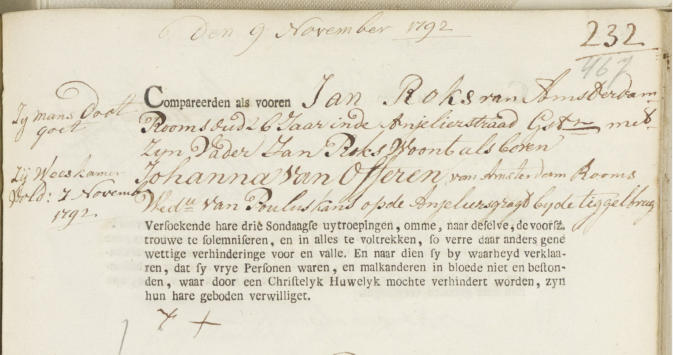 den 9 November 1792
232
467
Zy mans Doot
goet
Zy Weeskamer
Vold: 7 November
1792.
Compareerden als vooren Jan Roks van Amsterdam
Rooms oud 26 Jaar in de Anjelierstraad Gstr met
Zyn Vader Jan Roks Woont als boven
Johanna van Offeren van Amsterdam Rooms
Wedu van Poulus kans op de Anjeliersgragt by de tiggelbrug
Versoekende hare drie Sondaagse uytroepingen, omme, naar deselve, de voorsz.
trouwe te solemniseren, en in alles te voltrekken, so verre daar anders gene
wettige verhinderinge voor en valle. En naar dien sy by waarheyd verklaa-
ren, dat sy vrye Personen waren, en malkanderen in bloede niet en beston-
den, waar door een Christelyk Huwelyk mochte verhindert worden, zyn
hun hare geboden verwilliget.